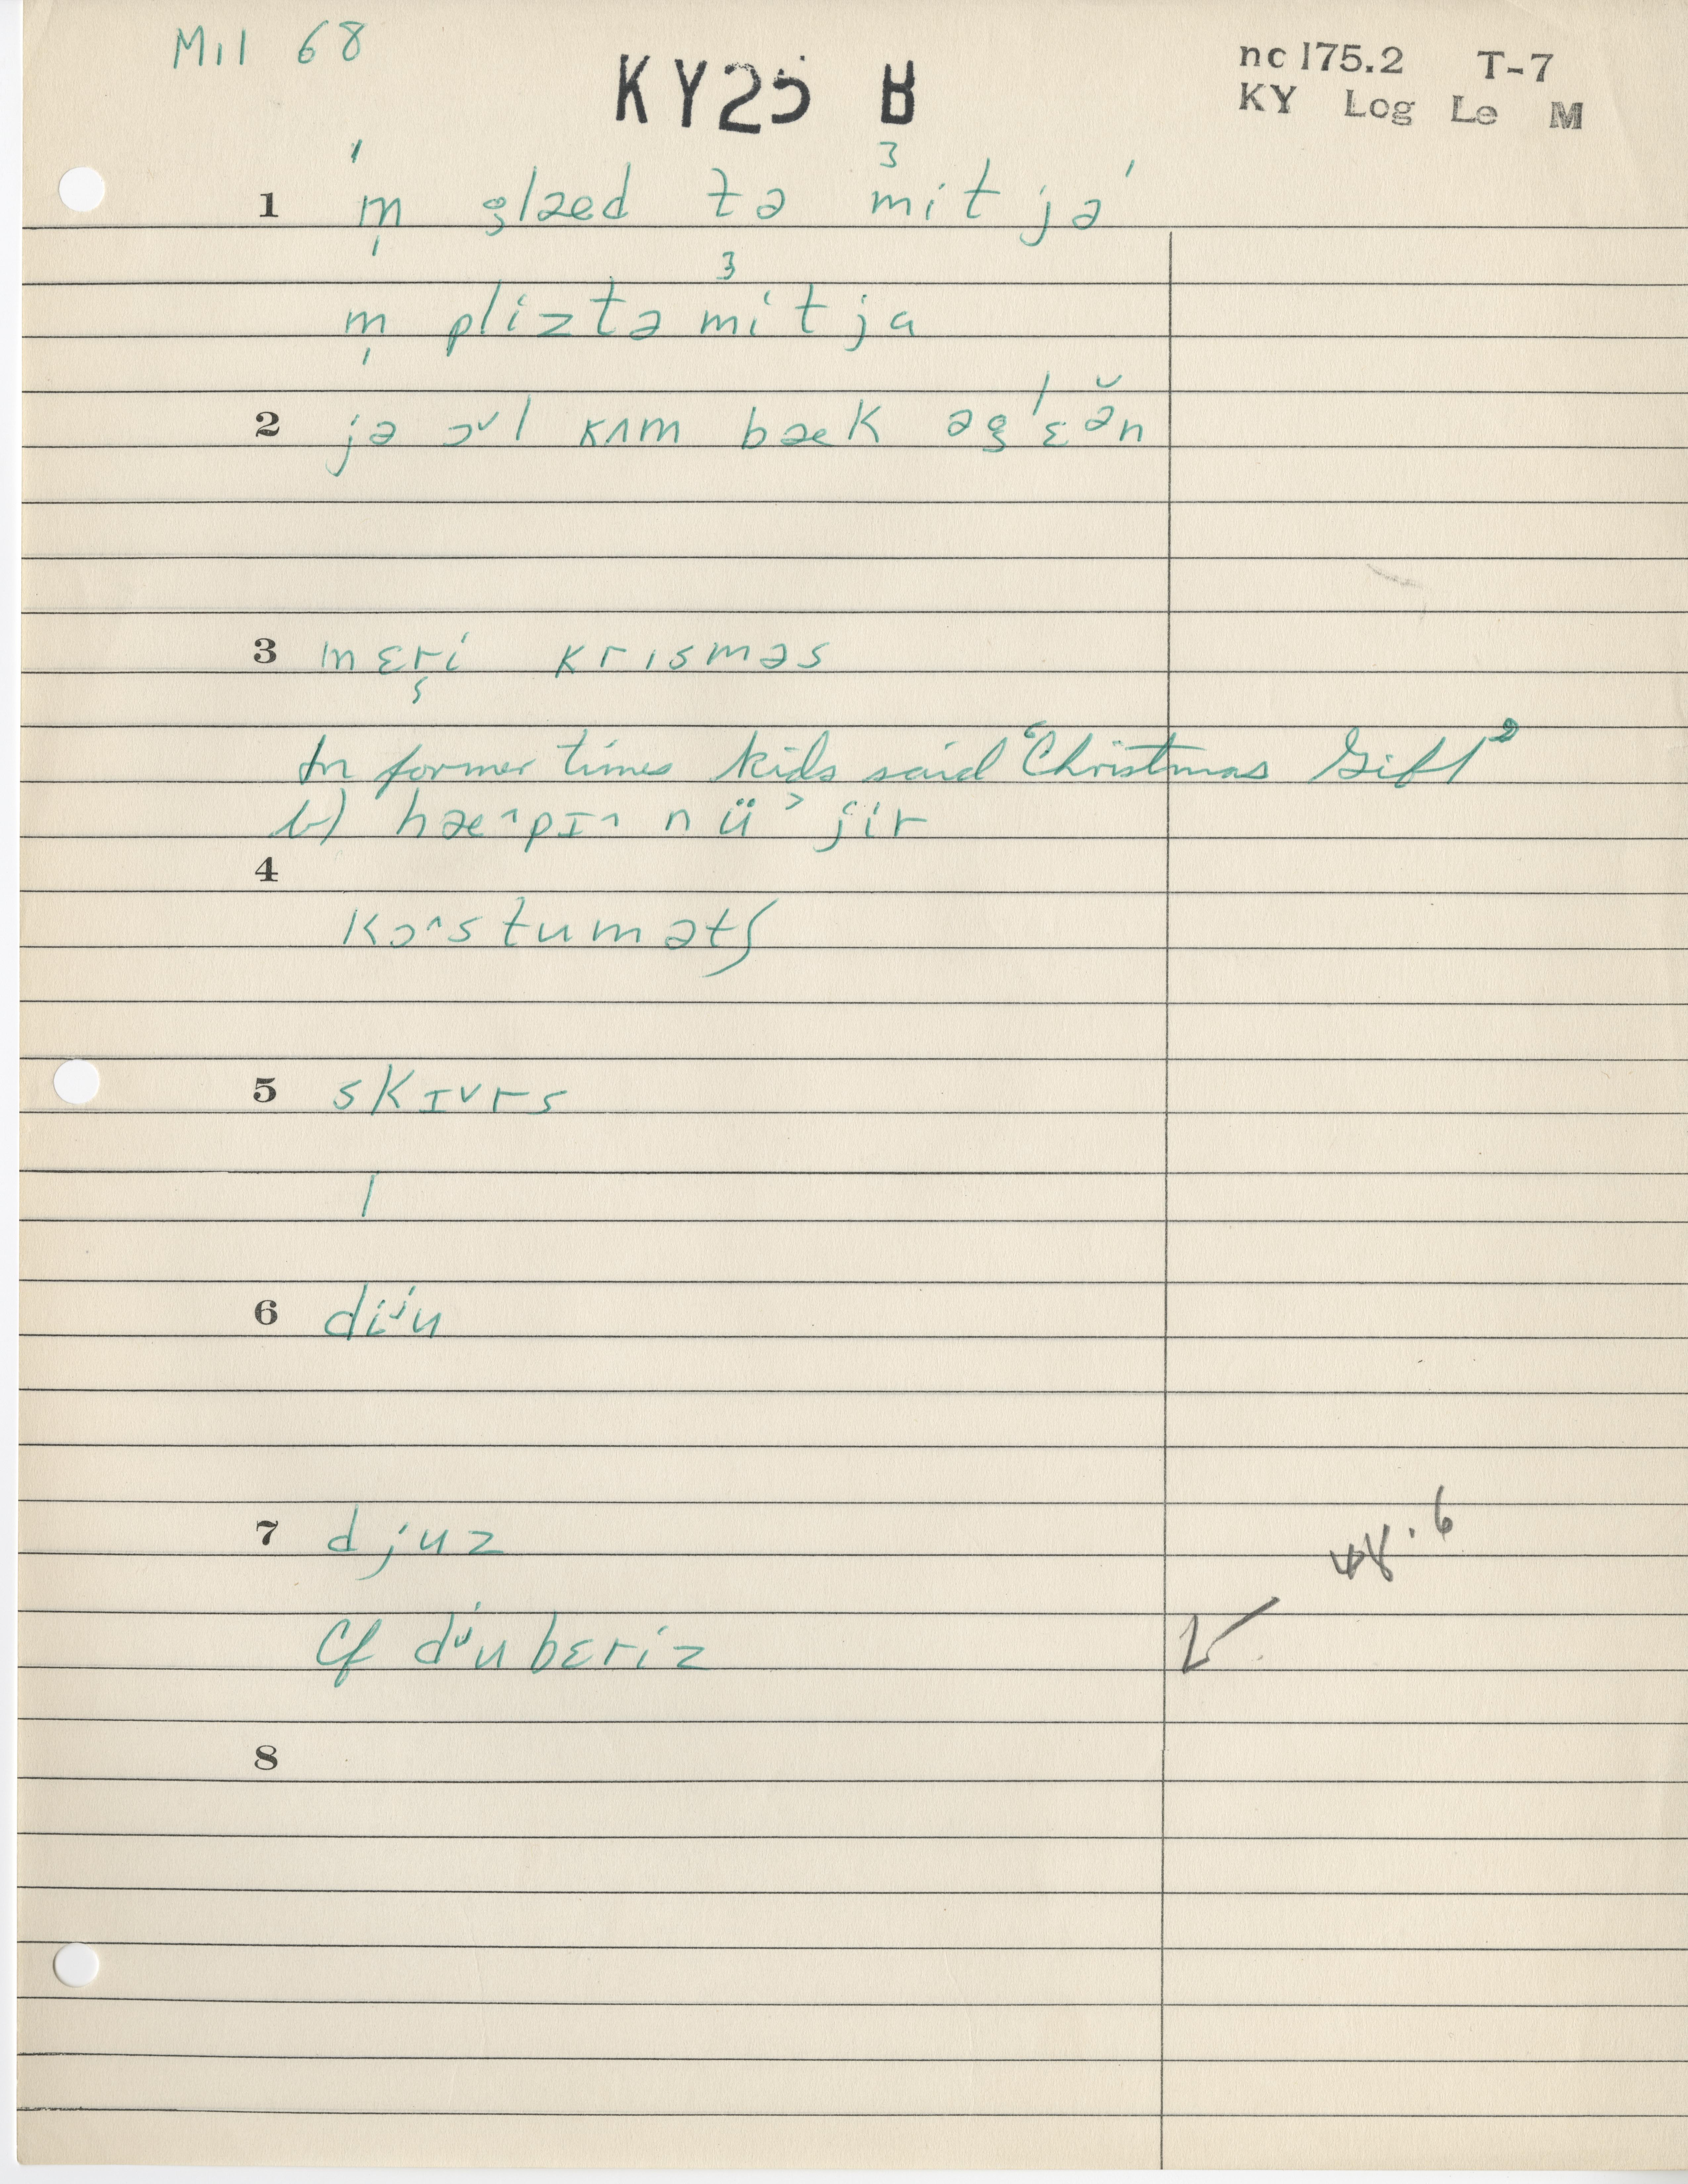 Mil 68
KY25 B
nc 175.2 T-7
KY Log Le M
1 m̩ glæd tə mit jə
m̩ pliztə mit ja
2 jə ɔ˅l kʌm bæk əgɛə̆n
3 mɛri krɪsməs
In former times kids said "Christmas Gift"
b) hæ^pɪ^ nü˃ jir
4
kɔ^stumətʃ
5 skɪ˅rs
|
6 diʲu
7 djuz
48.6
Cf dʲubɛriz
8